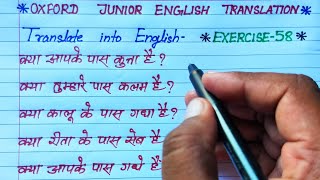 *OXFORD JUNIOR ENGLISH TRANSLATION*
Translate into English- *EXERCISE-58*
क्या आपके पास कुत्ता है?
क्या तुम्हारे पास कलम है?
क्या कालू के पास गधा है?
क्या रीता के पास सेब है
क्या आपके पास गधे है